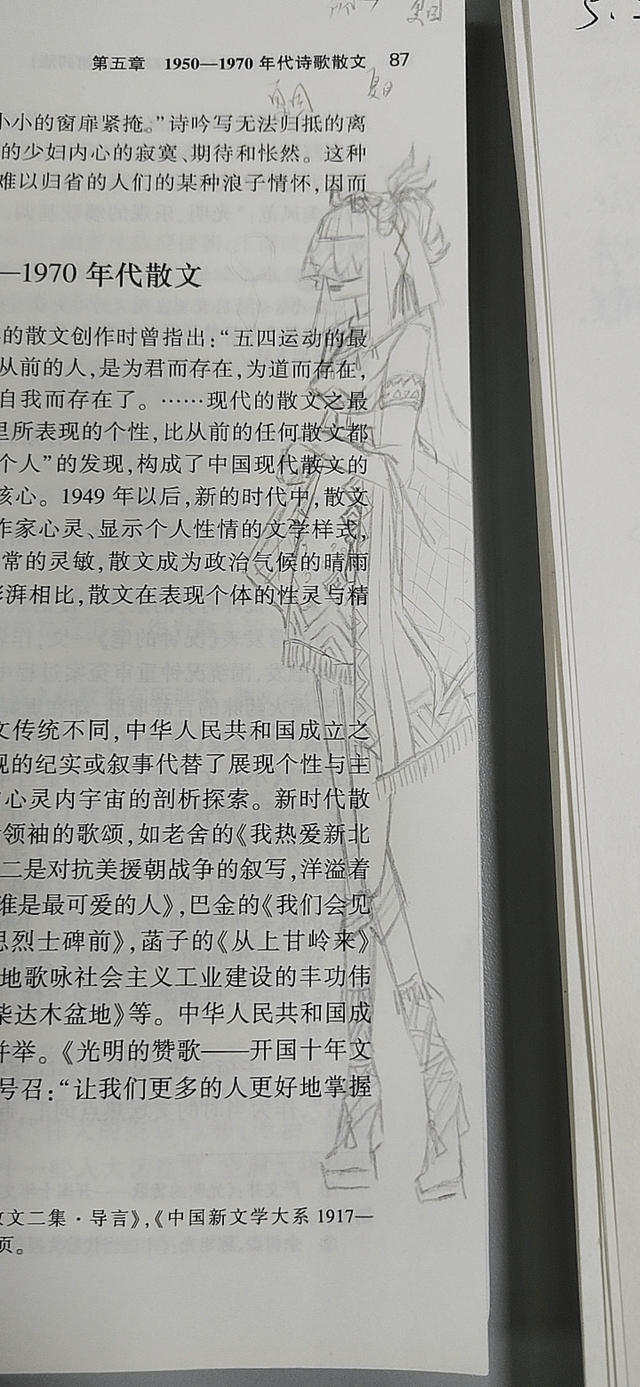 第五章 1950—1970 年代诗歌散文 87
小小的窗扉紧掩。”诗吟写无法归抵的离
的少妇内心的寂寞、期待和怅然。这种
难以归省的人们的某种浪子情怀,因而
—1970 年代散文
的散文创作时曾指出:“五四运动的最
从前的人,是为君而存在,为道而存在,
自我而存在了。……现代的散文之最
里所表现的个性,比从前的任何散文都
个人”的发现,构成了中国现代散文的
核心。1949 年以后,新的时代中,散文
作家心灵、显示个人性情的文学样式,
常的灵敏,散文成为政治气候的晴雨
澎湃相比,散文在表现个体的性灵与精
文传统不同,中华人民共和国成立之
观的纪实或叙事代替了展现个性与主
心灵内宇宙的剖析探索。新时代散
领袖的歌颂,如老舍的《我热爱新北
二是对抗美援朝战争的叙写,洋溢着
谁是最可爱的人》,巴金的《我们会见
思烈士碑前》,菡子的《从上甘岭来》
地歌咏社会主义工业建设的丰功伟
柴达木盆地》等。中华人民共和国成
并举。《光明的赞歌——开国十年文
号召:“让我们更多的人更好地掌握
散文二集·导言》,《中国新文学大系 1917—
页。